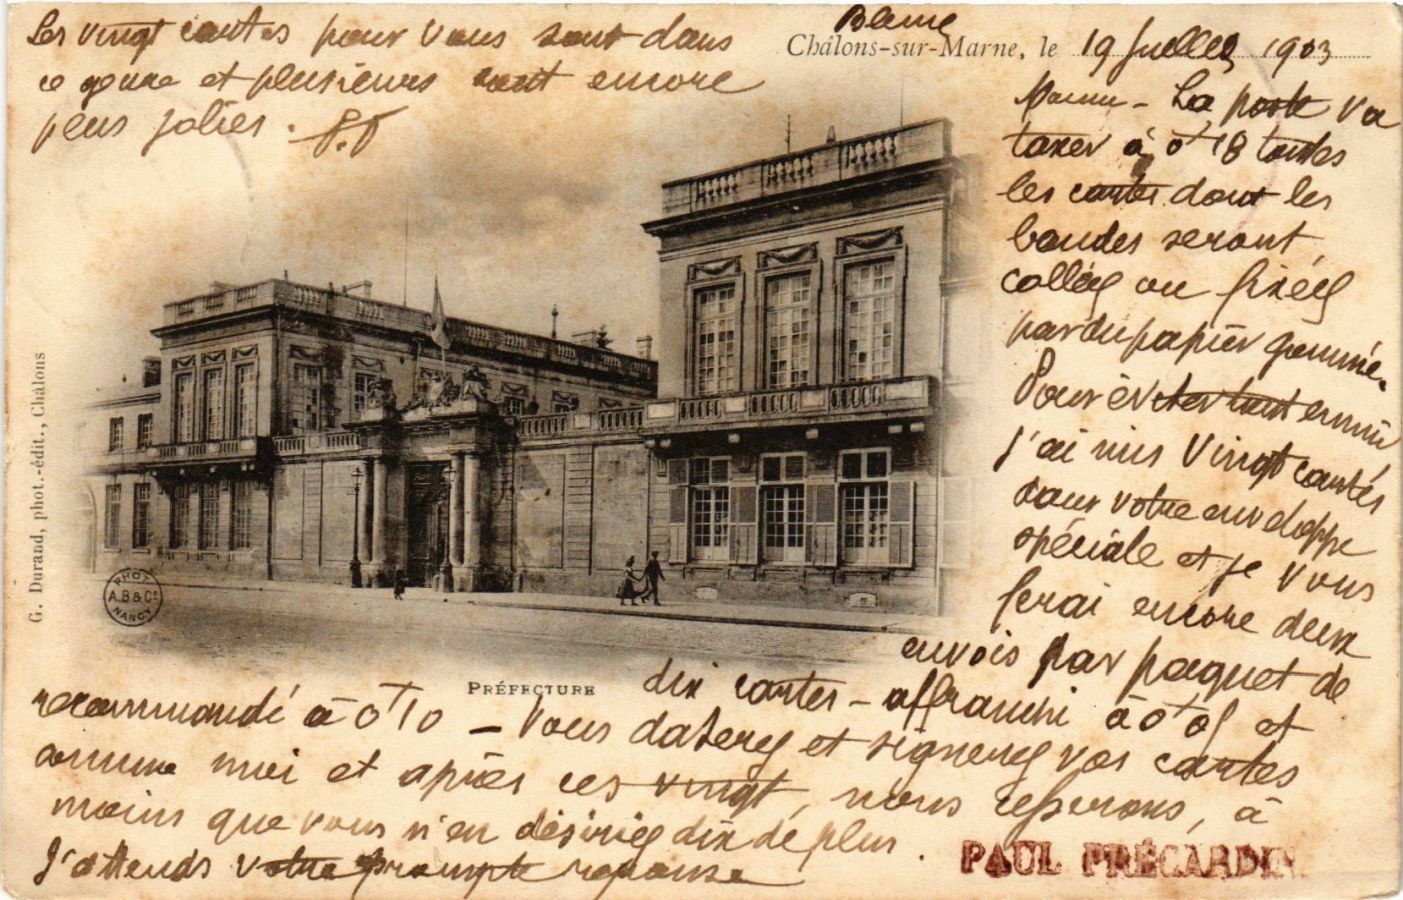 Les vingt cartes pour vous sont dans
ce genre et plusieurs sont encore
plus jolies. P.P
Châlons-sur-Marne, le 19 Juillet 1903
La poste va
taxer à 0f18 toutes
les cartes dont les
bandes seront
collées ou fixées
par du papier gommé.
Pour éviter tout ennui
j'ai mis vingt cartes
sous votre enveloppe
spéciale et je vous
ferai encore deux
envois par paquet de
dix cartes - affranchi à 0f05 et
recommandé à 0f10 - Vous daterez et signerez vos cartes
comme moi et après ces vingt, nous cesserons, à
moins que vous n'en désiriez dix de plus.
J'attends votre prompte réponse
PAUL PRÉCARDIN
PRÉFECTURE
G. Durand, phot.-édit., Châlons
PHOT
A.B & Co
NANCY